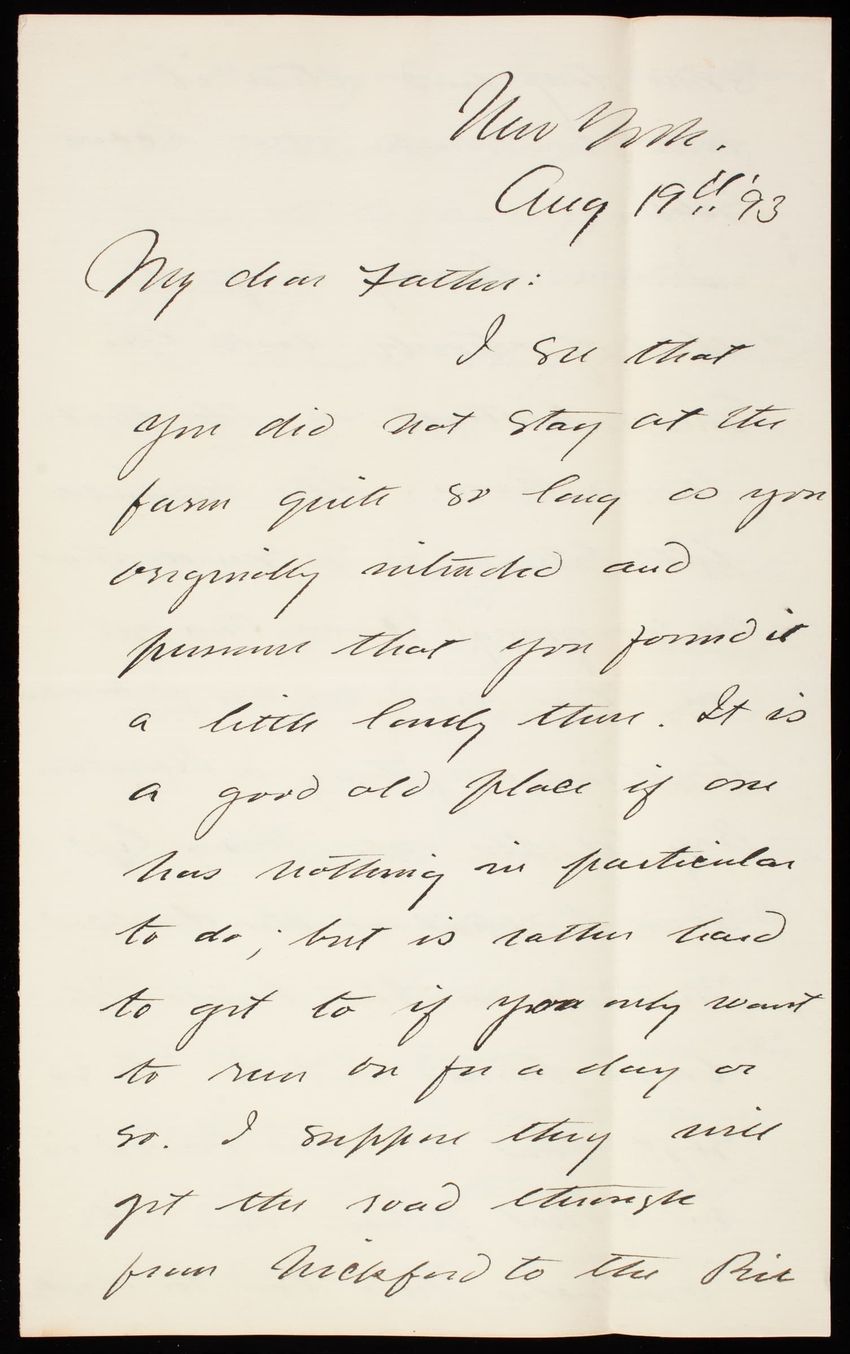 New York.
Aug 19th '93
My dear Father:
I see that
you did not stay at the
farm quite so long as you
originally intended and
presume that you found it
a little lonely there. It is
a good old place if one
has nothing in particular
to do; but is rather hard
to get to if you only want
to run on for a day or
so. I suppose they will
get the road through
from Wickford to the Pier